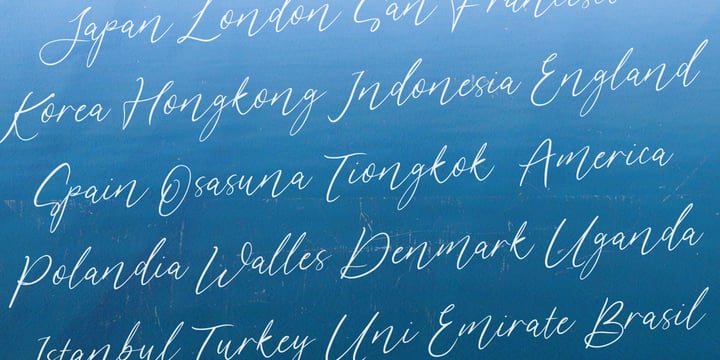 Japan London San Francisco
Korea Hongkong Indonesia England
Spain Osasuna Tiongkok America
Polandia Walles Denmark Uganda
Istanbul Turkey Uni Emirate Brasil